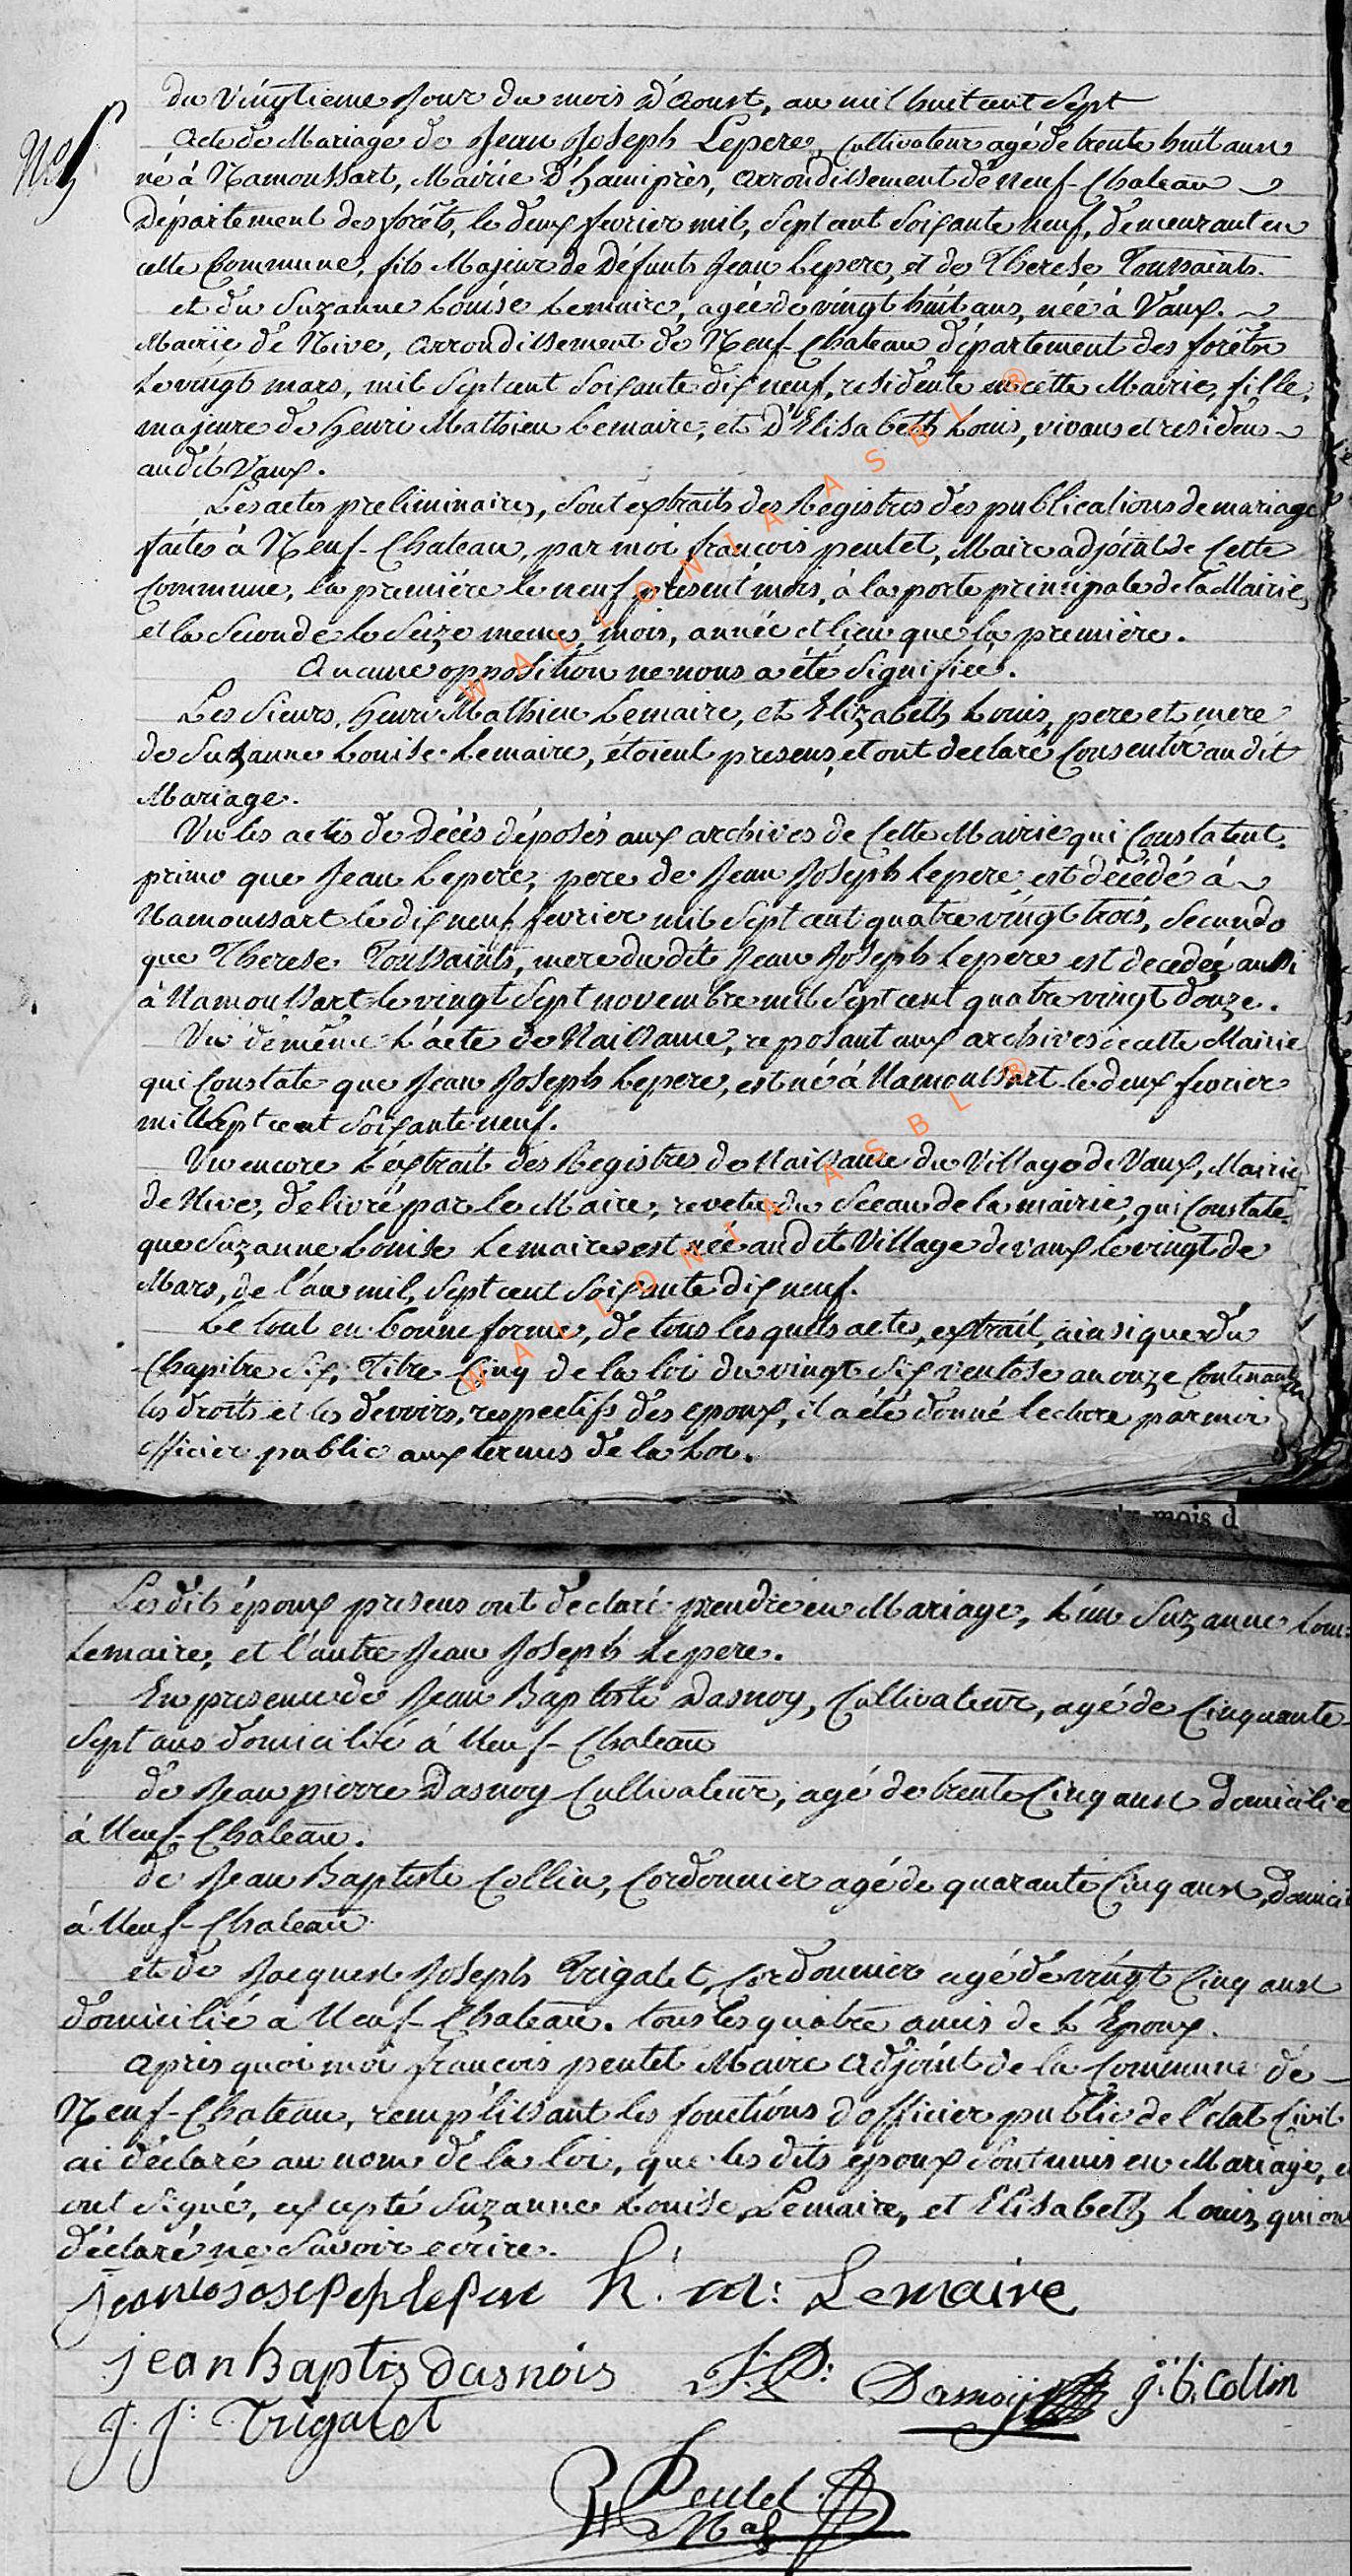 N.° 5
du vingtieme jour du mois d'aoust, an mil huit cent sept
acte de Mariage de Jean Joseph Lepere, cultivateur agé de trente huit ans
né à Namoussart, Mairie d'hamiprès, arrondissement de Neuf-Chateau
Département des forêts, le deux fevrier mil, sept cent soixante neuf, demeurant en
cette Commune, fils Majeur de Défunts Jean Lepere, et de Therese Toussaints.
et du Suzanne Louise Lemaire, agée de vingt huit ans, née à Vaux.
Mairie de Nive, arrondissement de Neuf-Chateau département des forêts
le vingt mars, mil sept cent soixante dix neuf, residente en cette Mairie, fille
majeure de Henri Mathieu Lemaire, et d'Elisabeth Louis, vivans et residens
au dit Vaux.
Les actes preliminaires, sont extraits des Registres des publications de mariage
faites à Neuf-Chateau, par moi françois peutet, Maire adjoint de Cette
Commune, la premiére le neuf present mois, à la porte principale de la Mairie,
et la seconde le seize meme mois, année et lieu que la premiere.
Aucune opposition ne nous a été signifiée.
Les Sieurs, Henri Mathieu Lemaire, et Elizabeth Louis, pere et mere
de Suzanne Louise Lemaire, étoient presens, et ont declaré Consentir au dit
Mariage.
Vu les actes de Décès déposés aux archives de Cette Mairie qui Constatent.
primo que Jean Lepere, pere de Jean Joseph Lepere, est décédé à
Namoussart le dix neuf fevrier mil sept cent quatre vingt trois, secundo
que Therese Toussaints, mere du dit Jean Joseph Lepere est decedée aussi
à Namoussart le vingt sept novembre mil sept cent quatre vingt douze.
Vu de même L'acte de Naissance, reposant aux archives de cette Mairie
qui Constate que Jean Joseph Lepere, est né à Namoussart le deux fevrier
mil sept cent soixante neuf.
Vu encore L'extrait des Registres de Naissance du Village de Vaux, Mairie
de Nive, délivré par le Maire, revetu du Sceau de la mairie, qui Constate
que Suzanne Louise Lemaire est née au dit Village de vaux le vingt de
Mars, de l'an mil, sept cent soixante dix neuf.
Le tout en bonne forme, de tous les quels actes, extrait, ainsi que du
Chapitre six, Titre Cinq de la loi du vingt six ventose an onze Contenant
les droits et les devoirs, respectifs des epoux, il a été donné lecture par moi
officier public aux termes de la Loi.
mois d
Les dits époux presens ont déclaré prendre en Mariage, L'un Suzanne Loui
Lemaire, et l'autre Jean Joseph Lepere.
En presence de Jean Baptiste Dasnoy, Cultivateur, agé de Cinquante
Sept ans domicilié à Neuf-Chateau
de Jean pierre Dasnoy Cultivateur, agé de trente Cinq ans domicilié
à Neuf-Chateau.
de Jean Baptiste Collin, Cordonnier agé de quarante Cinq ans, domici
à Neuf-Chateau
et de Jacques Joseph Trigalet, cordonnier agé de vingt Cinq ans
domicilié à Neuf-Chateau. tous les quatre amis de L'Epoux.
après quoi moi françois peutet Maire adjoint de la Commune de
Neuf-Chateau, remplissant les fonctions d'officier public de l'état Civil
ai déclaré au nom de la loi, que les dits époux sont unis en Mariage, e
ont signé, excepté Suzanne Louise Lemaire, et Elisabeth Louis, qui on
déclaré ne savoir ecrire.
h. m: Lemaire
jean Baptis dasnois J: P: Dasnoij j: b: collin
J. J: Trigalet
Peutet
WALLONIA ASBL ®
WALLONIA ASBL ®